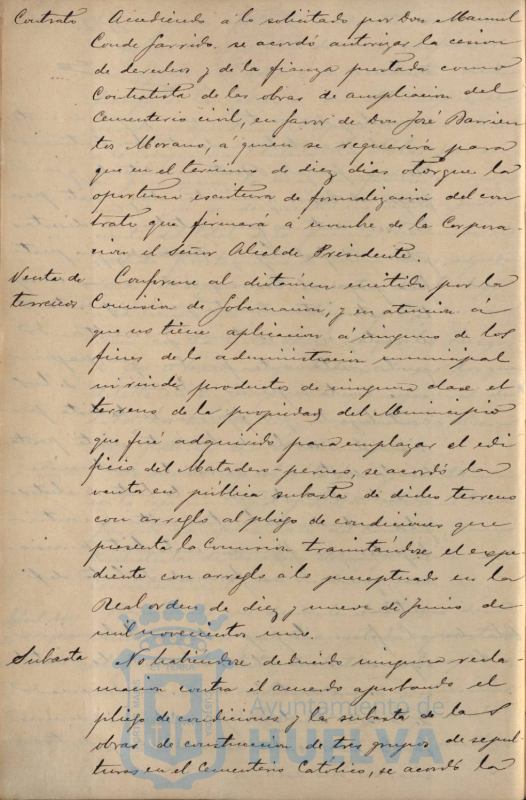 Contrato Accediendo á lo solicitado por Don Manuel
Conde Garrido, se acordó autorizar la cesion
de derechos y de la fianza prestada como
Contratista de las obras de ampliacion del
Cementerio civil, en favor de Don José Barrien
tos Morano, á quien se requerirá para
que en el término de diez dias otorgue la
oportuna escritura de formalizacion del con
trato que firmará á nombre de la Corpora-
cion el Señor Alcalde Presidente.
Venta de Conforme al dictámen emitido por la
terrenos Comision de Gobernacion, y en atencion á
que no tiene aplicacion á ninguno de los
fines de la administracion municipal
ni rinde productos de ninguna clase el
terreno de la propiedad del Municipio
que fué adquirido para emplazar el edi
ficio del Matadero-perros, se acordó la
venta en pública subasta de dicho terreno
con arreglo al pliego de condiciones que
presenta la Comisión tramitándose el expe-
diente con arreglo á lo preceptuado en la
Real orden de diez y nueve de Junio de
mil novecientos uno.
Subasta No habiéndose deducido ninguna recla-
macion contra el acuerdo aprobando el
pliego de condiciones y la subasta de las
obras de construccion de tres grupos de sepul-
turas en el Cementerio Católico, se acordó la
Ayuntamiento de
HUELVA